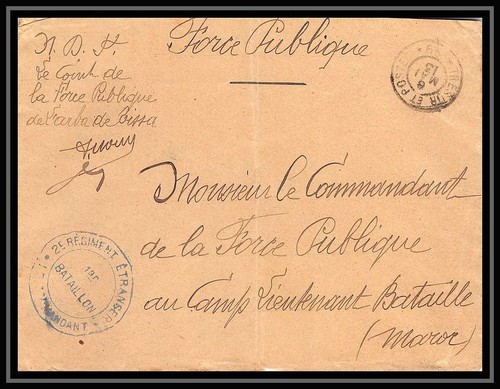 Force Publique
Le Comt de
la Force Publique
de Larba de Tissa
TRESOR ET POSTES
* 89 *
6
13
2E RÉGIMENT ÉTRANGER
1ER
BATAILLON
MANDANT
Monsieur le Commandant
de la Force Publique
au Camp Lieutenant Bataille
(Maroc)